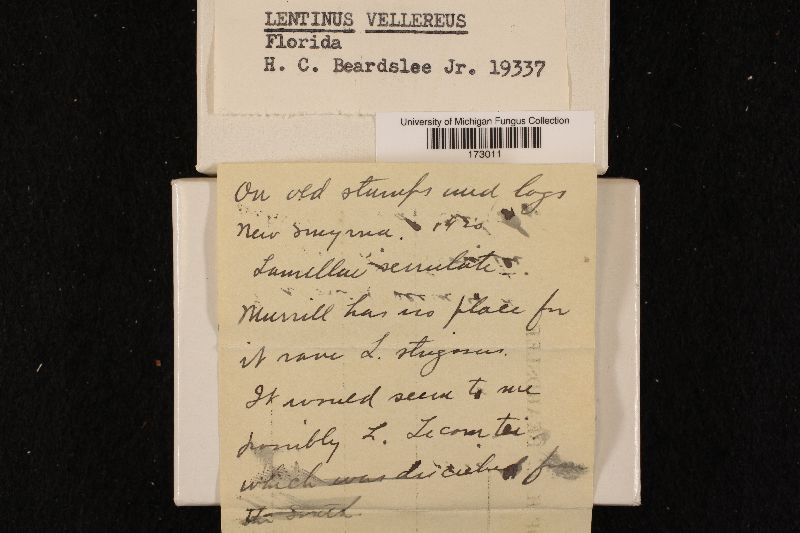 LENTINUS VELLEREUS
Florida
H. C. Beardslee Jr. 19337
University of Michigan Fungus Collection
173011
On old stumps and logs
New Smyrna. 1920
Lamellae serrulate.
Murrill has no place for
it save L. strigosus.
It would seem to me
possibly L. Lecomtei
which was described from
the South.